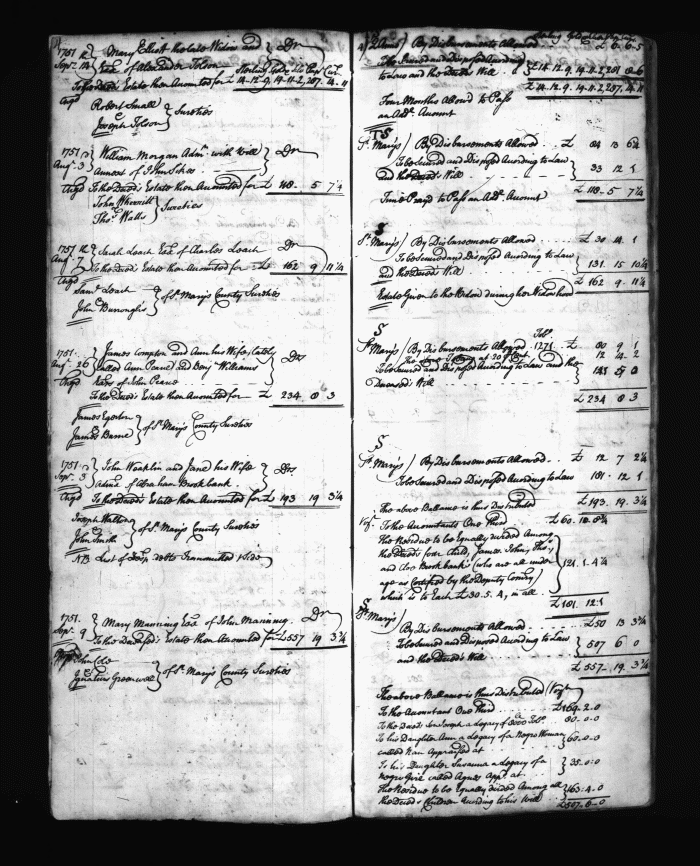 1751
Sept. 14
Mary Elliott the late Widow and
Exx. of Alexander Tolson
Dr
To the Deced's Estate then Amounted for £ 14-12-9. 14-11-2, 207. 4. 11
Chgd
Robert Small
Joseph Tolson
Sureties
1751
Augt. 3
William Morgan Admr. with Will
Annext of John Sikes
Dr
Chgd To the Deced's Estate then Amounted for £ 118 . 5 7¼
John Wherritt
Thos. Watts
Sureties
1751
Augt. 7
Chgd
Sarah Loach Exx. of Charles Loach
Dr
To the Deced's Estate then Amounted for £ 162 9 11¼
Saml. Loach
John Burroughs
of St. Marys County Sureties
1751.
Augt. 26
Chgd
James Compton and Ann his Wife, lately
called Ann Peavce and Benja. Williams
Exrs. of John Peavce
Drs
To the Deced's Estate then Amounted for £ 234 8 3
James Egerton
James Barne
of St. Marys County Sureties
1751
Sept. 3
Chgd
John Wocklin and Jane his Wife
Admx. of Abraham Brookbank
Drs
To the Deced's Estate then Amounted for £ 193 19 3¼
Joseph Walton
John Smith
of St. Marys County Sureties
NB List of Desp. debts Transmitted
1751.
Sept. 9
Mary Manning Exx. of John Manning.
Dr
To the Deceased's Estate then Amounted for £557 19 3¼
John Cole
Ignatius Greenwell
of St. Marys County Sureties
By Disbursements Allowed £ 6-6-5
To be Secured and Disposed According
to Law and the Deced's Will
£ 14.12.9. 14.11.2, 207. 4. 11
Four Months Allowed to Pass
an Addl. Account
S
St. Marys By Disbursements Allowed. £ 84 13 6¼
To be Secured and Disposed According to Law
and the Deced's Will 33 12 1
£ 118.5 7¼
Time Prayd to Pass an Addl. Account
S
St. Marys By Disbursements Allowed £ 30 14 1
To be Secured and Disposed According to Law
and the Deced's Will 131. 15 10¼
£ 162 9. 11¼
Estate Given to the Widow during her Widowhood
S
St. Marys By Disbursements Allowed Tobo. 1271. £ 80 9 1
12 14 2
To be Secured and Disposed According to Law and the
Deceased's Will 141 5 0
£ 234 8 3
S
St. Marys By Disbursements Allowed £ 12 7 2¼
To be Secured and Disposed According to Law 181. 12 1
£ 193. 19. 3¼
The above Ballance is thus Distributed
Vizt. To the Accountants One Third £ 60. 10. 8¼
The Residue to be Equally divided Among
the Deced's four Child, James, John, Thos.
and Brookbank (who are all under
age as Certified by the Deputy Comry)
which is to Each £ 30. 5. 4, in all.
121. 1. 4¼
£ 181 12.1
St. Marys
By Disbursements Allowed £50 13 3¼
To be Secured and Disposed According to Law
and the Deced's Will 507 6 0
£ 557 19. 3¼
The above Ballance is thus Distributed Vizt.
To the Accountant One Third £169. 2. 0
To the Deced's Son Joseph a Legacy of Tobo. 30. 0. 0
To his Daughter Ann a Legacy of a Negro Woman
called Nan Appraised at 60. 0. 0
To his Daughter Susanna a Legacy of a
Negro Girl called Agnes Appd. at 35. 0. 0
The Residue to be Equally divided Among all
the Deced's Children According to his Will
£507. 6. 0